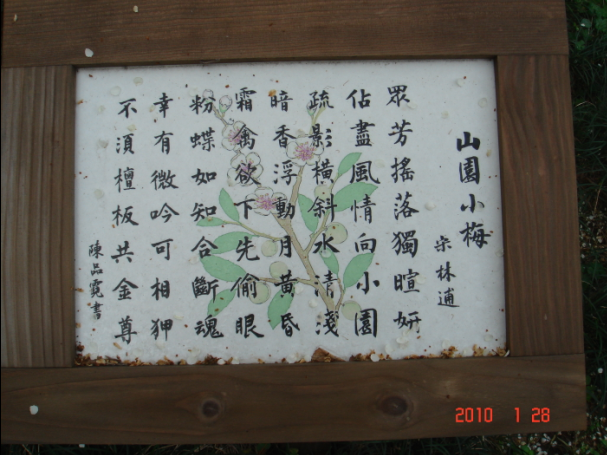 山園小梅
宋 林逋
眾芳搖落獨暄妍
佔盡風情向小園
疏影橫斜水清淺
暗香浮動月黃昏
霜禽欲下先偷眼
粉蝶如知合斷魂
幸有微吟可相狎
不須檀板共金尊
陳品霓書
2010 1 28